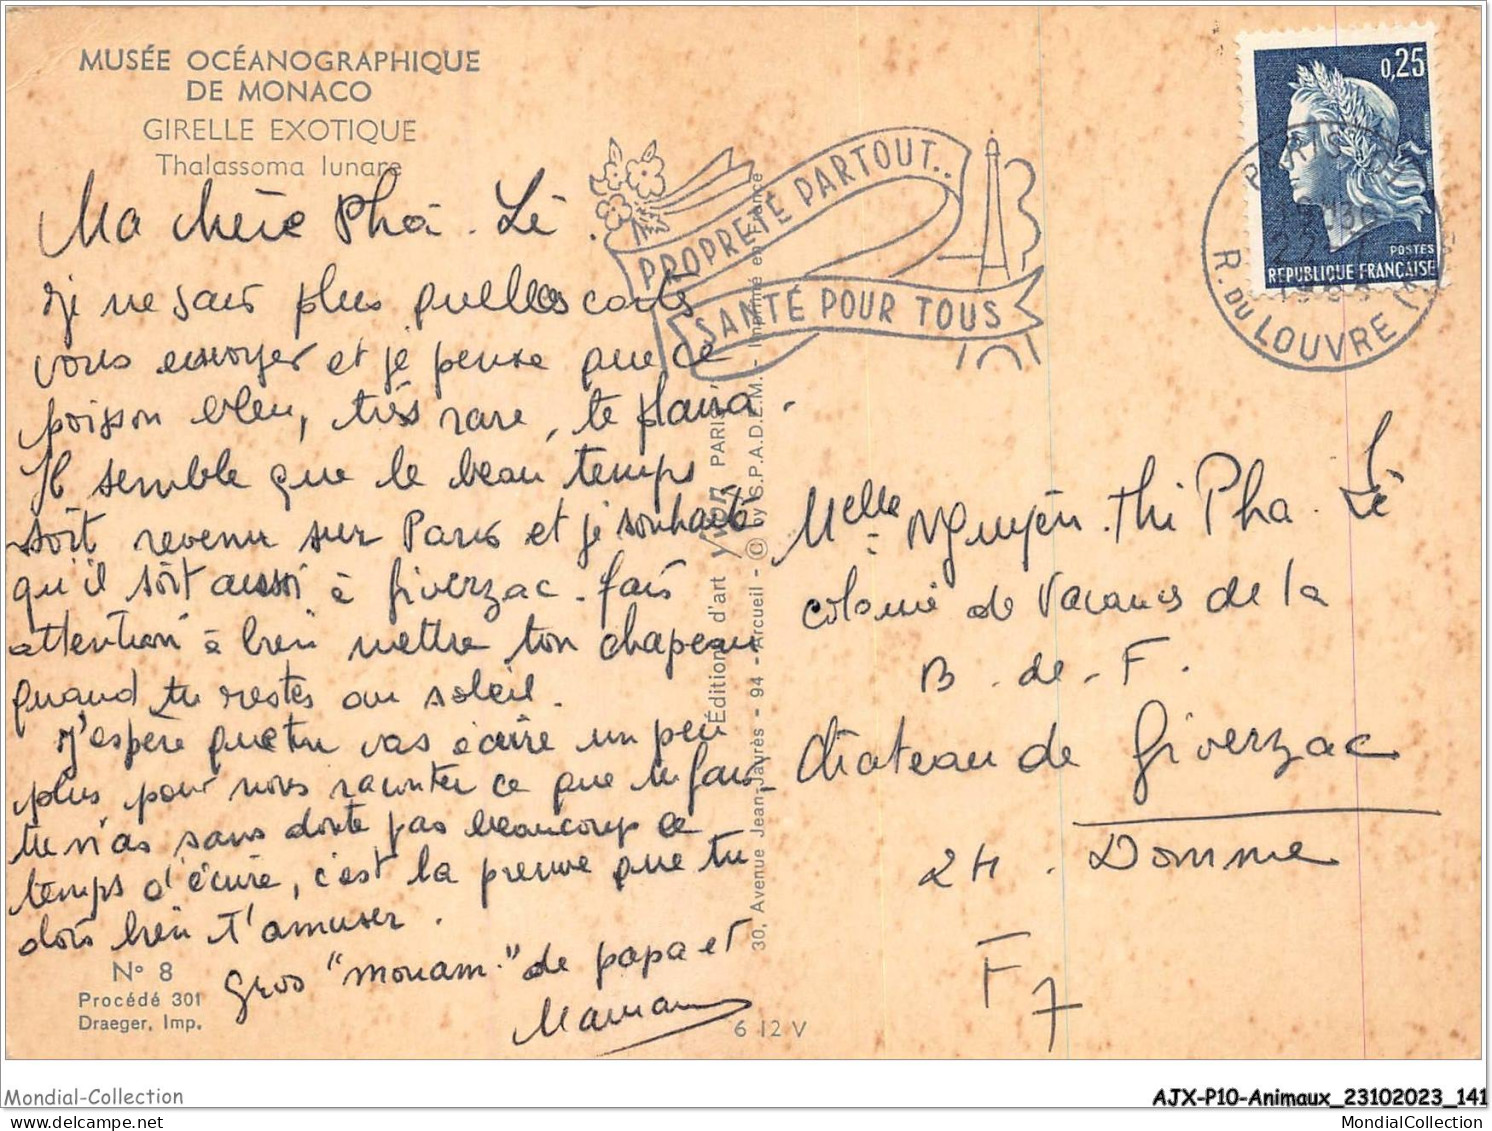 MUSÉE OCÉANOGRAPHIQUE
DE MONACO
GIRELLE EXOTIQUE
Thalassoma lunare
Ma chère Pha. Lê.
Je ne sais plus quelles cartes
vous envoyer et je pense que ce
poisson bleu, très rare, te plaira.
Il semble que le beau temps
soit revenu sur Paris et je souhaite
qu'il soit aussi à Giverzac. fais
attention à bien mettre ton chapeau
quand tu restes au soleil.
J'espère que tu vas écrire un peu
plus pour nous raconter ce que tu fais
tu n'as sans doute pas beaucoup de
temps d'écrire, c'est la preuve que tu
dois bien t'amuser.
Gros "mouam" de papa et
Maman
N° 8
Procédé 301
Draeger, Imp.
6 12 V
30, Avenue Jean-Jaurès - 94 - Arcueil - © by S.P.A.D.E.M. - Imprimé en France
Édition d'art Yvon PARIS
PROPRETÉ PARTOUT..
SANTÉ POUR TOUS
0,25
POSTES
REPUBLIQUE FRANÇAISE
PARIS
R. DU LOUVRE
Melle Nguyên. thi Pha. Lê
colonie de Vacances de la
B. de. F.
Château de Giverzac
24. Domme
F7
Mondial-Collection
AJX-P10-Animaux_23102023_141
MondialCollection